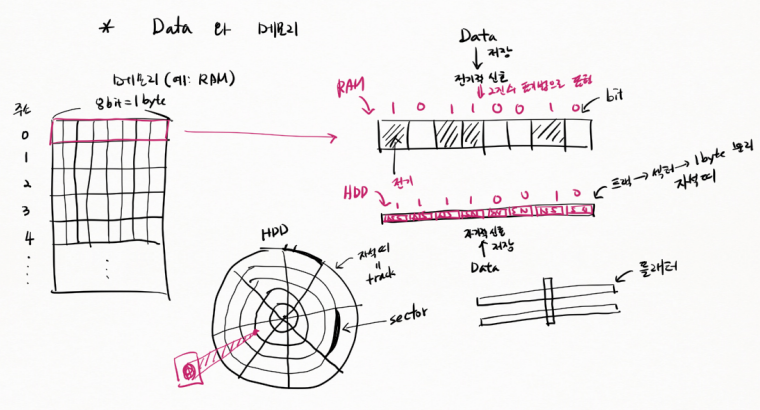 * Data 와 메모리
메모리 (예: RAM)
8bit = 1byte
주소
0
1
2
3
4
Data
저장
전기적 신호
2진수 표기법으로 표현
RAM
1 0 1 1 0 0 1 0
bit
전기
HDD
1 1 1 1 0 0 1 0
트랙 → 섹터 → 1byte 분리
자석띠
자기적 신호
저장
Data
플래터
HDD
자석띠
=
track
sector